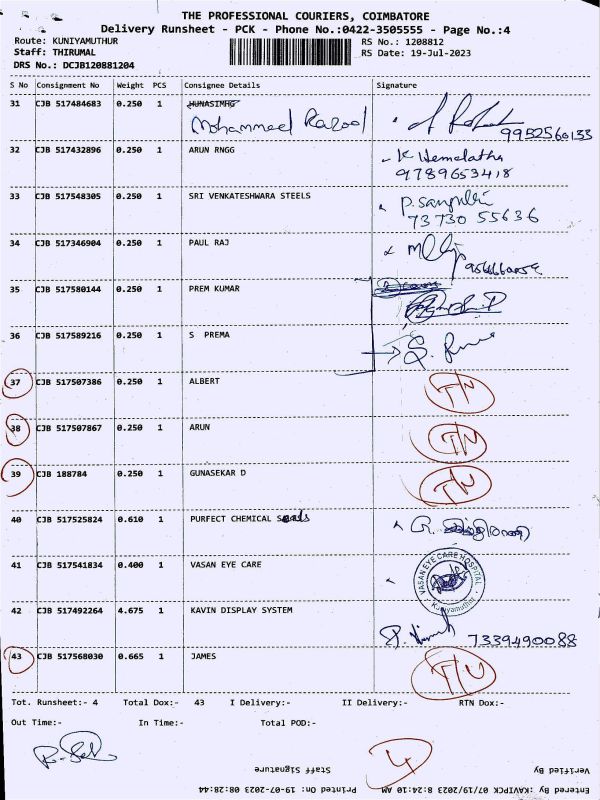 THE PROFESSIONAL COURIERS, COIMBATORE
Delivery Runsheet - PCK - Phone No.:0422-3505555 - Page No.:4
Route: KUNIYAMUTHUR RS No.: 1208812
Staff: THIRUMAL RS Date: 19-Jul-2023
DRS No.: DCJB120881204
S No Consignment No Weight PCS Consignee Details Signature
31 CJB 517484683 0.250 1 HUNASIMHG
Mohammeed Razool 9952560133
32 CJB 517432896 0.250 1 ARUN RNGG K Hemalatha
9789653418
33 CJB 517548305 0.250 1 SRI VENKATESHWARA STEELS
73730 55636
34 CJB 517346904 0.250 1 PAUL RAJ
35 CJB 517580144 0.250 1 PREM KUMAR
36 CJB 517589216 0.250 1 S PREMA
37 CJB 517507386 0.250 1 ALBERT
38 CJB 517507867 0.250 1 ARUN
39 CJB 188784 0.250 1 GUNASEKAR D
40 CJB 517525824 0.610 1 PURFECT CHEMICAL Seals
41 CJB 517541834 0.400 1 VASAN EYE CARE VASAN EYE CARE HOSPITAL Kuniyamuthur
42 CJB 517492264 4.675 1 KAVIN DISPLAY SYSTEM
7339490088
43 CJB 517568030 0.665 1 JAMES
Tot. Runsheet:- 4 Total Dox:- 43 I Delivery:- II Delivery:- RTN Dox:-
Out Time:- In Time:- Total POD:-
4
Staff Signature Verified By
Printed On: 19-07-2023 08:28:44 Entered By :KAVIPCK 07/19/2023 8:24:10 AM